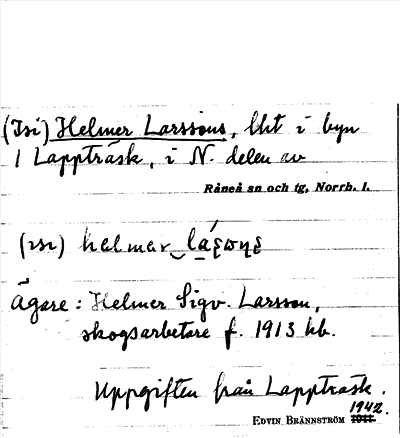 (Isi) Helmer Larssons, lht i byn
1 Lappträsk, i N. delen av
Råneå sn och tg, Norrb. l.
(ɪsɪ) helmar
Ägare: Helmer Sigv. Larsson,
skogsarbetare f. 1913 hb.
Uppgiften från Lappträsk.
1942.
EDVIN BRÄNNSTRÖM 1941.